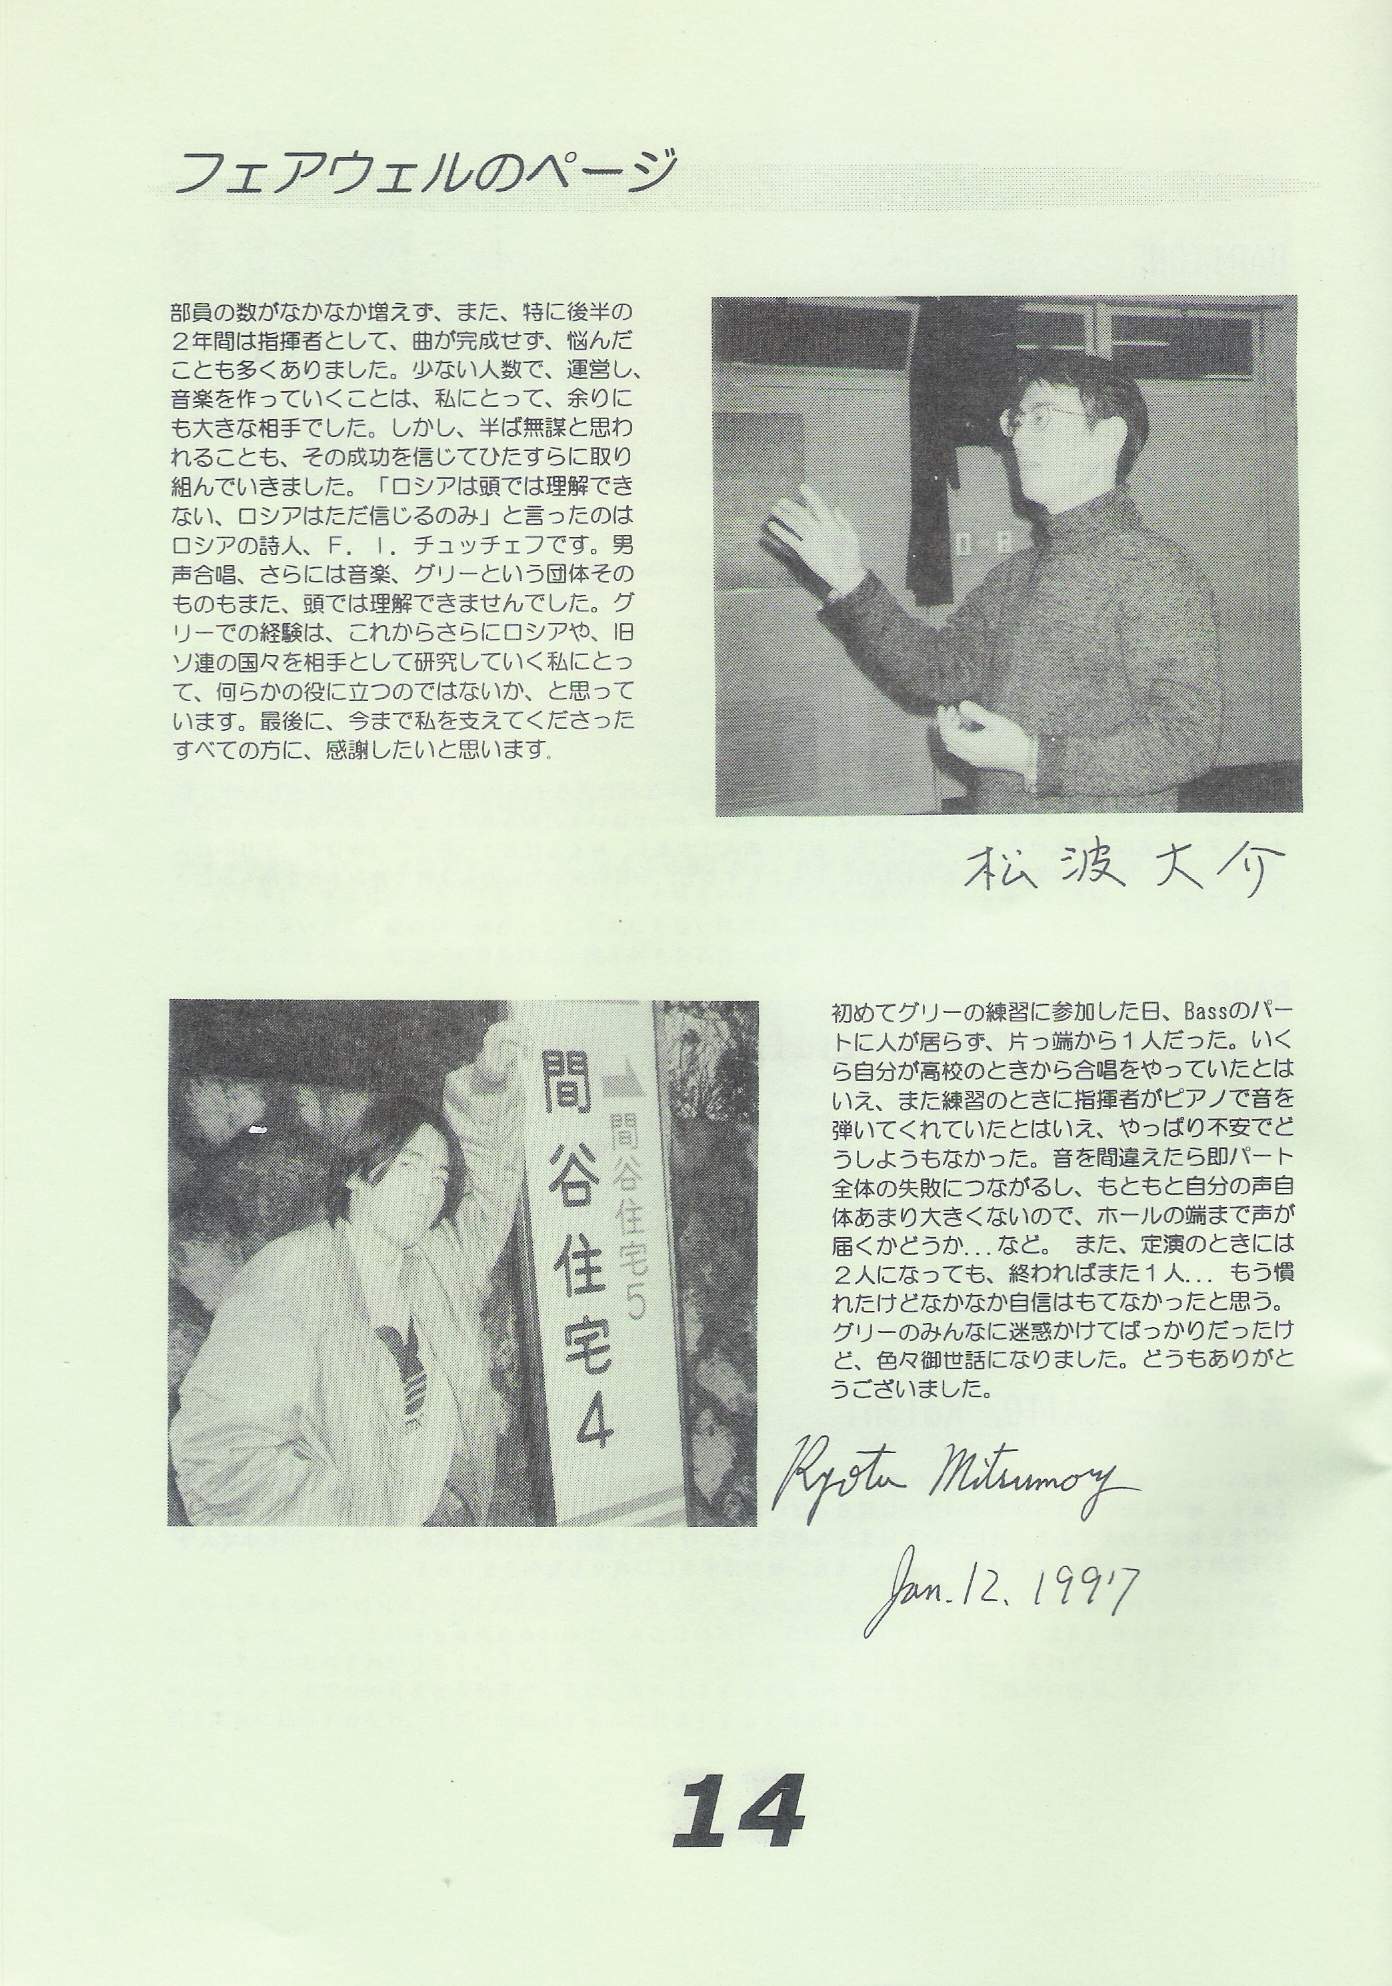 フェアウェルのページ
部員の数がなかなか増えず、また、特に後半の
２年間は指揮者として、曲が完成せず、悩んだ
ことも多くありました。少ない人数で、運営し、
音楽を作っていくことは、私にとって、余りに
も大きな相手でした。しかし、半ば無謀と思わ
れることも、その成功を信じてひたすらに取り
組んでいきました。「ロシアは頭では理解でき
ない、ロシアはただ信じるのみ」と言ったのは
ロシアの詩人、Ｆ．Ｉ．チュッチェフです。男
声合唱、さらには音楽、グリーという団体その
ものもまた、頭では理解できませんでした。グ
リーでの経験は、これからさらにロシアや、旧
ソ連の国々を相手として研究していく私にとっ
て、何らかの役に立つのではないか、と思って
います。最後に、今まで私を支えてくださった
すべての方に、感謝したいと思います。
松波大介
間谷住宅4
間谷住宅5
初めてグリーの練習に参加した日、Bassのパー
トに人が居らず、片っ端から１人だった。いく
ら自分が高校のときから合唱をやっていたとは
いえ、また練習のときに指揮者がピアノで音を
弾いてくれていたとはいえ、やっぱり不安でど
うしようもなかった。音を間違えたら即パート
全体の失敗につながるし、もともと自分の声自
体あまり大きくないので、ホールの端まで声が
届くかどうか...など。 また、定演のときには
２人になっても、終わればまた１人... もう慣
れたけどなかなか自信はもてなかったと思う。
グリーのみんなに迷惑かけてばっかりだったけ
ど、色々御世話になりました。どうもありがと
うございました。
Ryota Mitsumory
Jan. 12. 1997
14